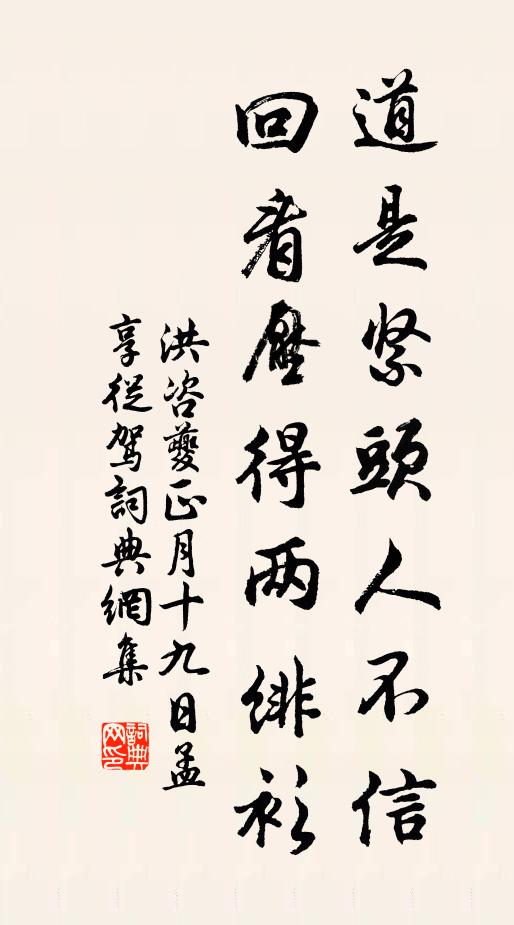 道是紧頭人不信
回看壓得两緋衫
洪咨夔正月十九日孟
享從駕詞典網集
詞典网印